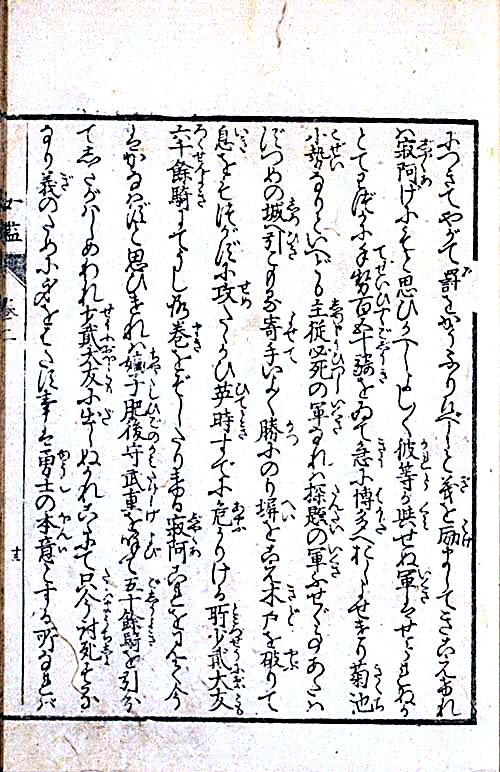 につきてやがて罸をかうふりなんと義を励ましてきこえければ
寂阿げにもと思ひかへしよし〳〵彼等が與せぬ軍はせられぬか
とてわづかに手勢百五十騎をゐて急に博多へおしよせたり菊池
小勢なりといへども主従必死の軍なれば探題の軍ふせぐにあたは
ずつめの城へ引こもる寄手いよ〳〵勝にのり塀をこえ木戸を破りて
息をもつがず攻たゝかひ英時すでに危かりける所少貳大友
六千餘騎にてうしろ巻をぞしたりける寂阿これを見て今
はかなはじと思ひければ嫡子肥後守武重を呼て五十餘騎を引分
てしたがはしめわれ少貳大友に出しぬかれこゝにて只今討死を
なり義のために命をおとす事は勇士の本意とする所なれば
鑑 巻二
十三